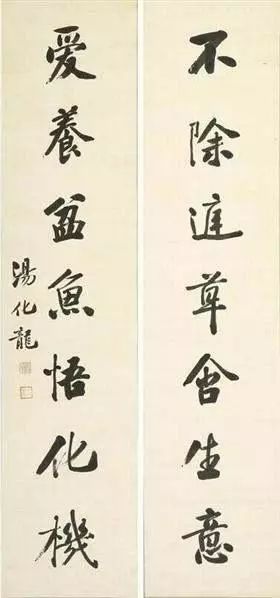 不除庭草含生意
爱養盆魚悟化機
湯化龍